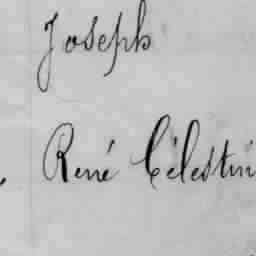 Joseph
René Célestin